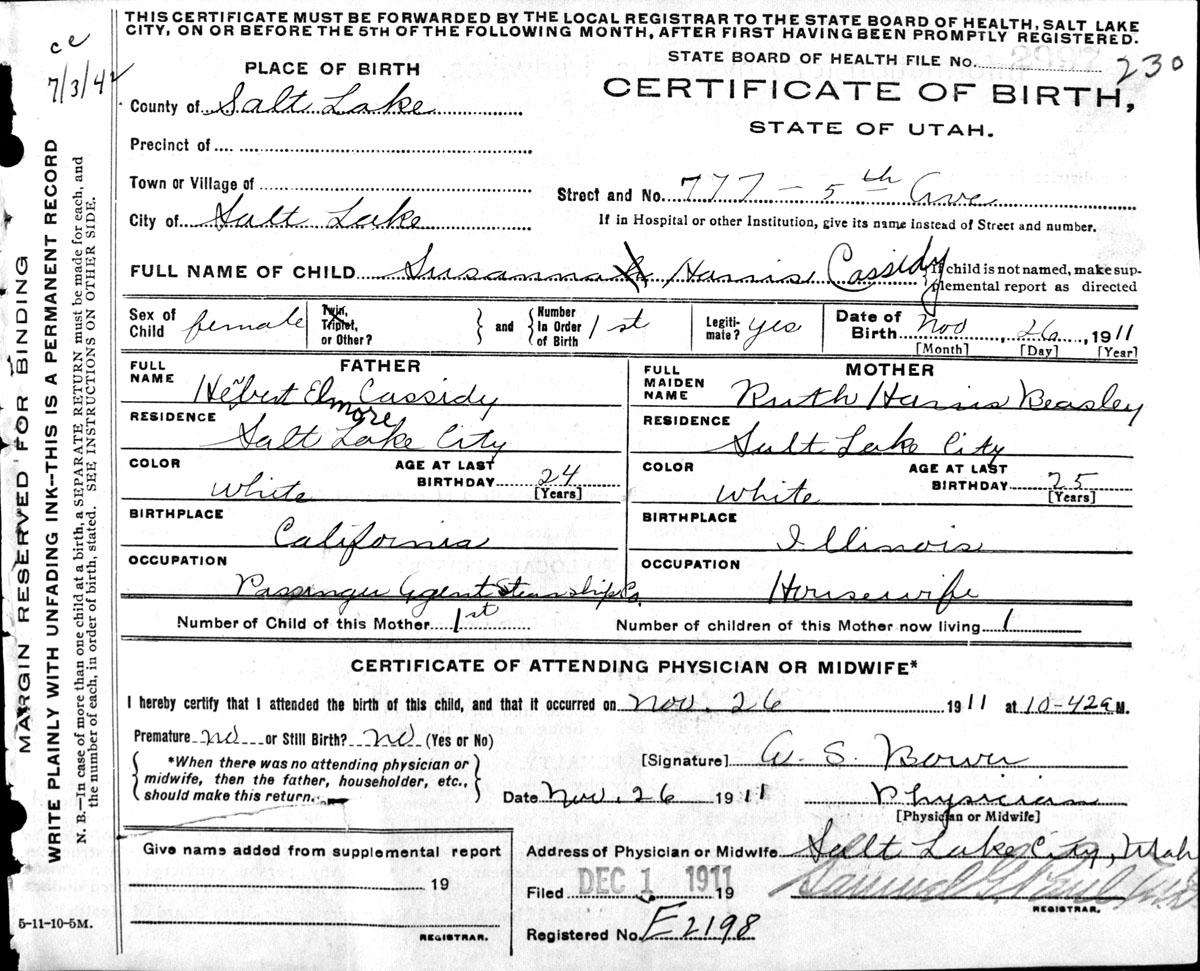 THIS CERTIFICATE MUST BE FORWARDED BY THE LOCAL REGISTRAR TO THE STATE BOARD OF HEALTH, SALT LAKE
CITY, ON OR BEFORE THE 5TH OF THE FOLLOWING MONTH, AFTER FIRST HAVING BEEN PROMPTLY REGISTERED.
cc
7/3/42
STATE BOARD OF HEALTH FILE No. 230
PLACE OF BIRTH
CERTIFICATE OF BIRTH,
STATE OF UTAH.
County of Salt Lake
Precinct of
Town or Village of
Street and No. 777 - 5th Ave
City of Salt Lake
If in Hospital or other Institution, give its name instead of Street and number.
FULL NAME OF CHILD Susanna Harris Cassidy
If child is not named, make sup-
plemental report as directed
Sex of Child female
Twin, Triplet, or Other?
and
Number In Order of Birth 1st
Legiti-mate? yes
Date of Birth Nov 26, 1911
[Month] [Day] [Year]
FATHER
FULL NAME Hebert Elmore Cassidy
RESIDENCE Salt Lake City
COLOR White
AGE AT LAST BIRTHDAY 24
[Years]
BIRTHPLACE California
OCCUPATION Passenger Agent Steamship Co.
MOTHER
FULL MAIDEN NAME Ruth Harris Beasley
RESIDENCE Salt Lake City
COLOR White
AGE AT LAST BIRTHDAY 25
[Years]
BIRTHPLACE Illinois
OCCUPATION Housewife
Number of Child of this Mother 1st
Number of children of this Mother now living 1
CERTIFICATE OF ATTENDING PHYSICIAN OR MIDWIFE*
I hereby certify that I attended the birth of this child, and that it occurred on Nov. 26 1911 at 10-42 a M.
Premature no or Still Birth? no (Yes or No)
*When there was no attending physician or
midwife, then the father, householder, etc.,
should make this return.
[Signature] A. S. Bower
Date Nov. 26 1911 Physician
[Physician or Midwife]
Give name added from supplemental report
19
REGISTRAR.
Address of Physician or Midwife Salt Lake City, Utah
Filed DEC 1 1911 19
REGISTRAR.
Registered No. E2198
5-11-10-5M.
MARGIN RESERVED FOR BINDING
WRITE PLAINLY WITH UNFADING INK--THIS IS A PERMANENT RECORD
N. B.—In case of more than one child at a birth, a SEPARATE RETURN must be made for each, and
the number of each, in order of birth, stated. SEE INSTRUCTIONS ON OTHER SIDE.